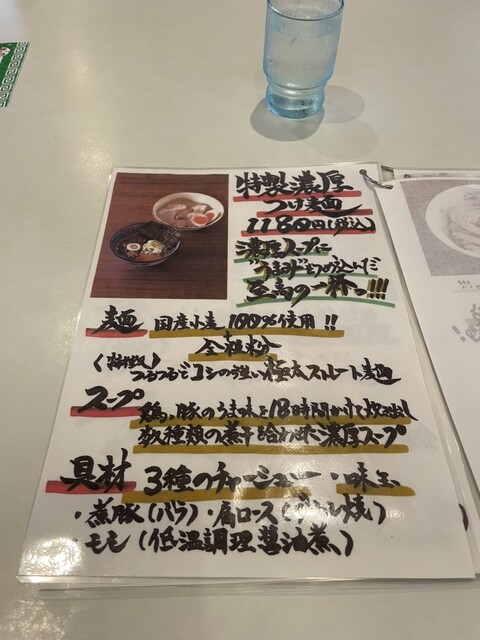 特製濃厚
つけ麺
1180円(税込)
濃厚スープに
うまみギュっつめ込んだ
至高の一杯っ!!!
麺 国産小麦100%使用!!
全粒粉
(特徴) つるつるでコシの強い極太ストレート麺
スープ 鶏、豚のうま味を18時間かけて炊き出し
数種類の煮干を合わせた濃厚スープ
具材 3種のチャーシュー・味玉
・煮豚(バラ)・肩ロース(
焼)
・モモ(低温調理醤油煮)